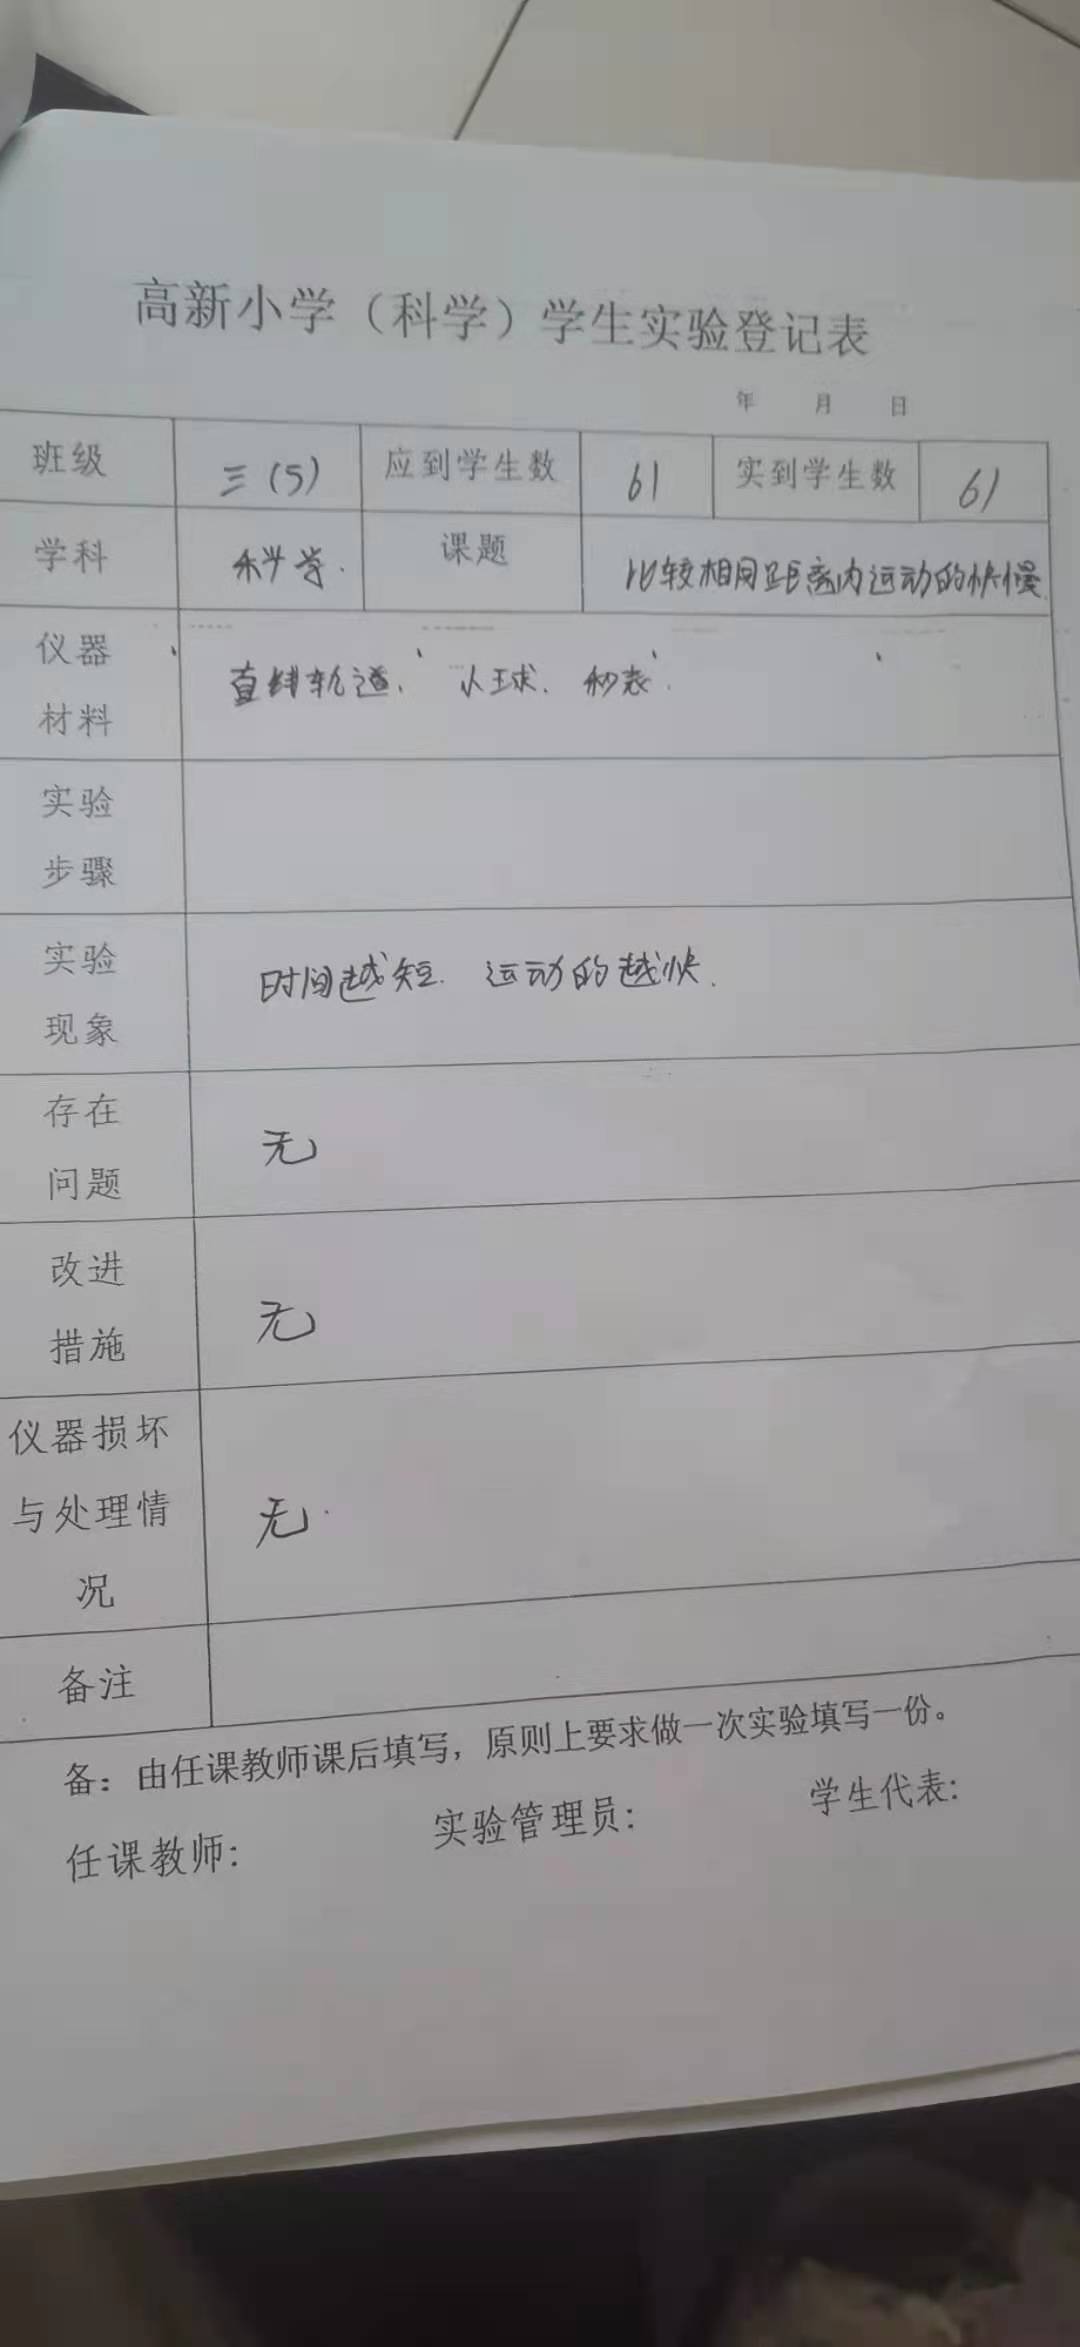 高新小学（科学）学生实验登记表
年 月 日
班级 三（5） 应到学生数 61 实到学生数 61
学科 科学. 课题 比较相同距离内运动的快慢.
仪器
材料
直线轨道、小球、秒表.
实验
步骤
实验
现象
时间越短. 运动的越快.
存在
问题
无
改进
措施
无
仪器损坏
与处理情
况
无.
备注
备：由任课教师课后填写，原则上要求做一次实验填写一份。
任课教师: 实验管理员: 学生代表: